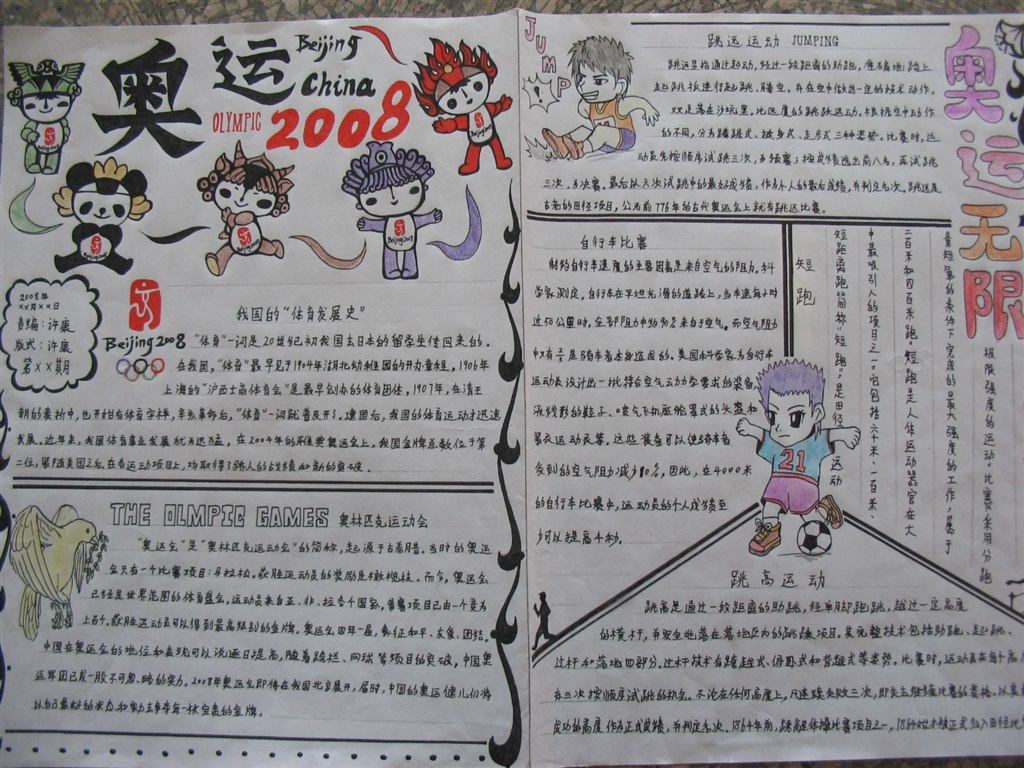 奥运
Beijing
China
OLYMPIC 2008
2008年
××月××日
责编：许康
版式：许康
第××期
Beijing 2008
我国的“体育发展史”
“体育”一词是20世纪初我国去日本的留学生传回来的。
在我国，“体育”最早见于1904年湖北幼稚园的开办章程，1906年
上海的“沪西士商体育会”是最早创办的体育团体，1907年，在清王
朝的奏折中，也开始有体育字样，辛亥革命后，“体育”一词就普及开了，建国后，我国的体育运动才迅速
发展。近年来，我国体育事业发展
在2004年的雅典奥运会上，我国金牌总数位于第
二位，
THE OLMPIC GAMES 奥林匹克运动会
“奥运会”是“奥林匹克运动会”的简称，起源于古希腊。当时的奥运
会只有一个比赛项目：马拉松。获胜运动员的奖励是橄榄枝。而今，奥运会
已经是世界范围的体育盛会，运动员来自亚、非、拉各个国家，
上百个。获胜运动员可以得到最高级别的金牌。奥运会四年一届，象征和平、友谊、团结。
中国在奥运会的地位和表现可以说逐日提高，随着跨栏、网球等项目的突破，中国奥
运军团已成一股不可忽略的势力。2008年奥运会即将在我国北京展开，届时，中国的奥运健儿们将
以自己最好的状态和实力去争夺每一枚宝贵的金牌。
JUMP
跳远运动 JUMPING
跳远是指通过起动，经过一段距离的助跑，
起跳板进行起跳，腾空，并在空中做出一定的技术动作，
双足落在沙坑里，比远度的跳跃运动。根据空中动作
的不同，分为蹲踞式、挺身式、走步式三种姿势。比赛时，运
动员先按顺序试跳三次，为预赛；按成绩选出前八名，再试跳
三次，为决赛，最后以六次试跳中的最好成绩，作为个人的最后成绩，并判定名次。跳远是
古老的田径项目，公元前776年的古代奥运会上就有跳远比赛。
奥运无限
自行车比赛
制约自行车速度的主要因素是来自空气的阻力。科
学家测定，自行车在平坦光滑的道路上，当车速每小时
近50公里时，全部阻力中约90%来自于空气。而空气阻力
是骑车者本身造成的。美国科学家为自行车
运动员设计出一批符合空气动力学要求的装备，
流线型的鞋子、
紧衣运动服等。这些装备可以使骑车者
受到的空气阻力减少10%，因此，在4000米
的自行车比赛中，运动员的个人成绩至
少可以提高4秒。
短跑
短距离跑简称“短跑”是田径运动
中最吸引人的项目之一。它包括六十米、一百米、
二百米和四百米跑。短跑是人体运动器官在大
量短氧的条件下完成的最大强度的工作，属于
极限强度的运动。比赛采用分跑
21
跳高运动
跳高是通过一段距离的助跳，经单脚起跳，越过一定高度
的横杆，并安全地落在落地区内的跳跃项目。其完整技术包括助跑、起跳、
过杆和落地四部分。过杆技术有跨越式、俯卧式和背越式等姿势。比赛时，运动员在每个高度
有三次按顺序试跳的机会。不论在任何高度上，凡连续失败三次，即失去继续比赛的资格。以其最
成功的高度作为正式成绩，并判定名次。1864年前，跳高